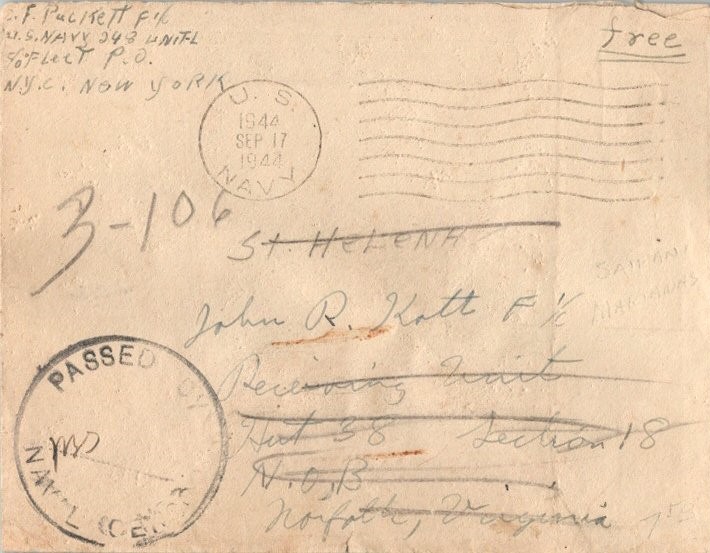 F Puckett F 1/c
U.S. NAVY 248 UNIT-L
c/o Fleet P.O.
N.Y.C. NEW YORK
free
U. S.
1944
SEP 17
1944
NAVY
3-106
St. HELENA
SAIPAN
MARIANAS
John R. Kott F 1/c
Receiving Unit
Hut 38 Section 18
N.O.B
Norfolk, Virginia
PASSED BY
NAVAL CENSOR